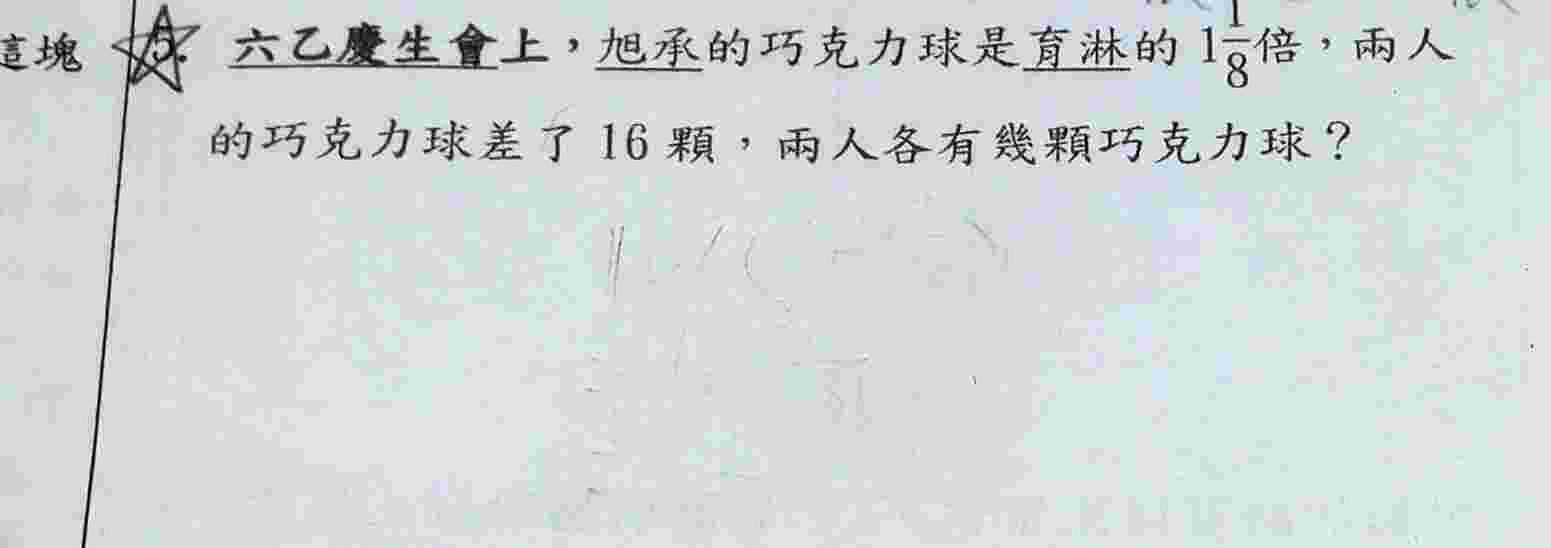 這塊
5. 六乙慶生會上，旭承的巧克力球是育淋的 1 1/8 倍，兩人
的巧克力球差了 16 顆，兩人各有幾顆巧克力球？